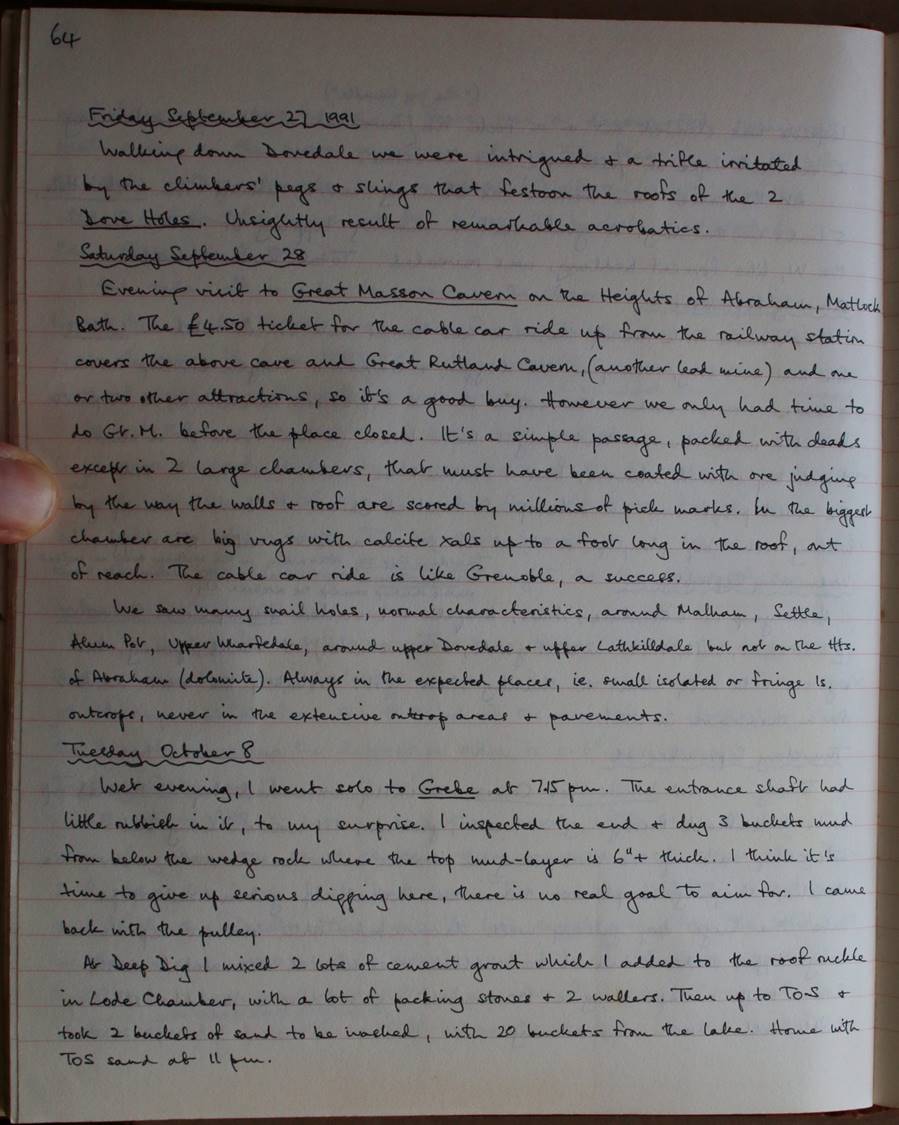 64
Friday September 27 1991
Walking down Dovedale we were intrigued + a trifle irritated
by the climbers' pegs + slings that festoon the roofs of the 2
Dove Holes. Unsightly result of remarkable acrobatics.
Saturday September 28
Evening visit to Great Masson Cavern on the Heights of Abraham, Matlock
Bath. The £4.50 ticket for the cable car ride up from the railway station
covers the above cave and Great Rutland Cavern, (another lead mine) and one
or two other attractions, so it's a good buy. However we only had time to
do Gt. M. before the place closed. It's a simple passage, packed with deads
except in 2 large chambers, that must have been coated with ore judging
by the way the walls + roof are scored by millions of pick marks. In the biggest
chamber are big vugs with calcite xals up to a foot long in the roof, out
of reach. The cable car ride is like Grenoble, a success.
We saw many snail holes, normal characteristics, around Malham, Settle,
Alum Pot, Upper Wharfedale, around upper Dovedale + upper Lathkilldale but not on the Hts.
of Abraham (dolomite). Always in the expected places, ie. small isolated or fringe ls.
outcrops, never in the extensive outcrop areas + pavements.
Tuesday October 8
Wet evening, I went solo to Grebe at 7.15 pm. The entrance shaft had
little rubbish in it, to my surprise. I inspected the end + dug 3 buckets mud
from below the wedge rock where the top mud-layer is 6"+ thick. I think it's
time to give up serious digging here, there is no real goal to aim for. I came
back with the pulley.
At Deep Dig I mixed 2 lots of cement grout which I added to the roof ruckle
in Lode Chamber, with a lot of packing stones + 2 wallers. Then up to TOS +
took 2 buckets of sand to be washed, with 20 buckets from the lake. Home with
TOS sand at 11 pm.